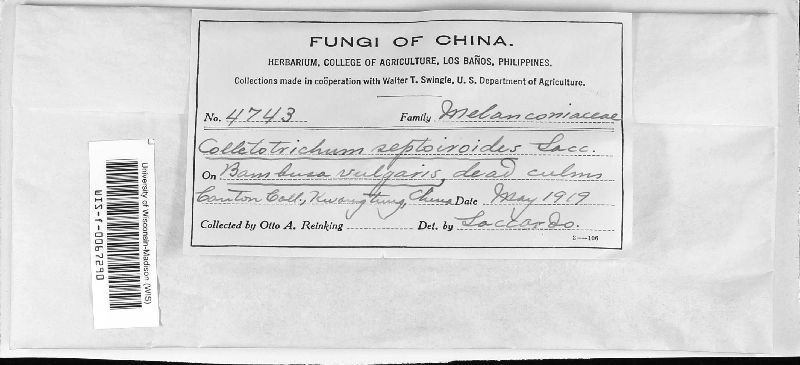 FUNGI OF CHINA.
HERBARIUM, COLLEGE OF AGRICULTURE, LOS BAÑOS, PHILIPPINES.
Collections made in coöperation with Walter T. Swingle, U. S. Department of Agriculture.
No. 4743 Family Melanconiaceae
Colletotrichum septoiroides Sacc.
On Bambusa vulgaris, dead culms
Canton Coll., Kwangtung, China Date May 1919
Collected by Otto A. Reinking Det. by Saccardo.
S—106
University of Wisconsin-Madison (WIS)
WIS-f-0067260